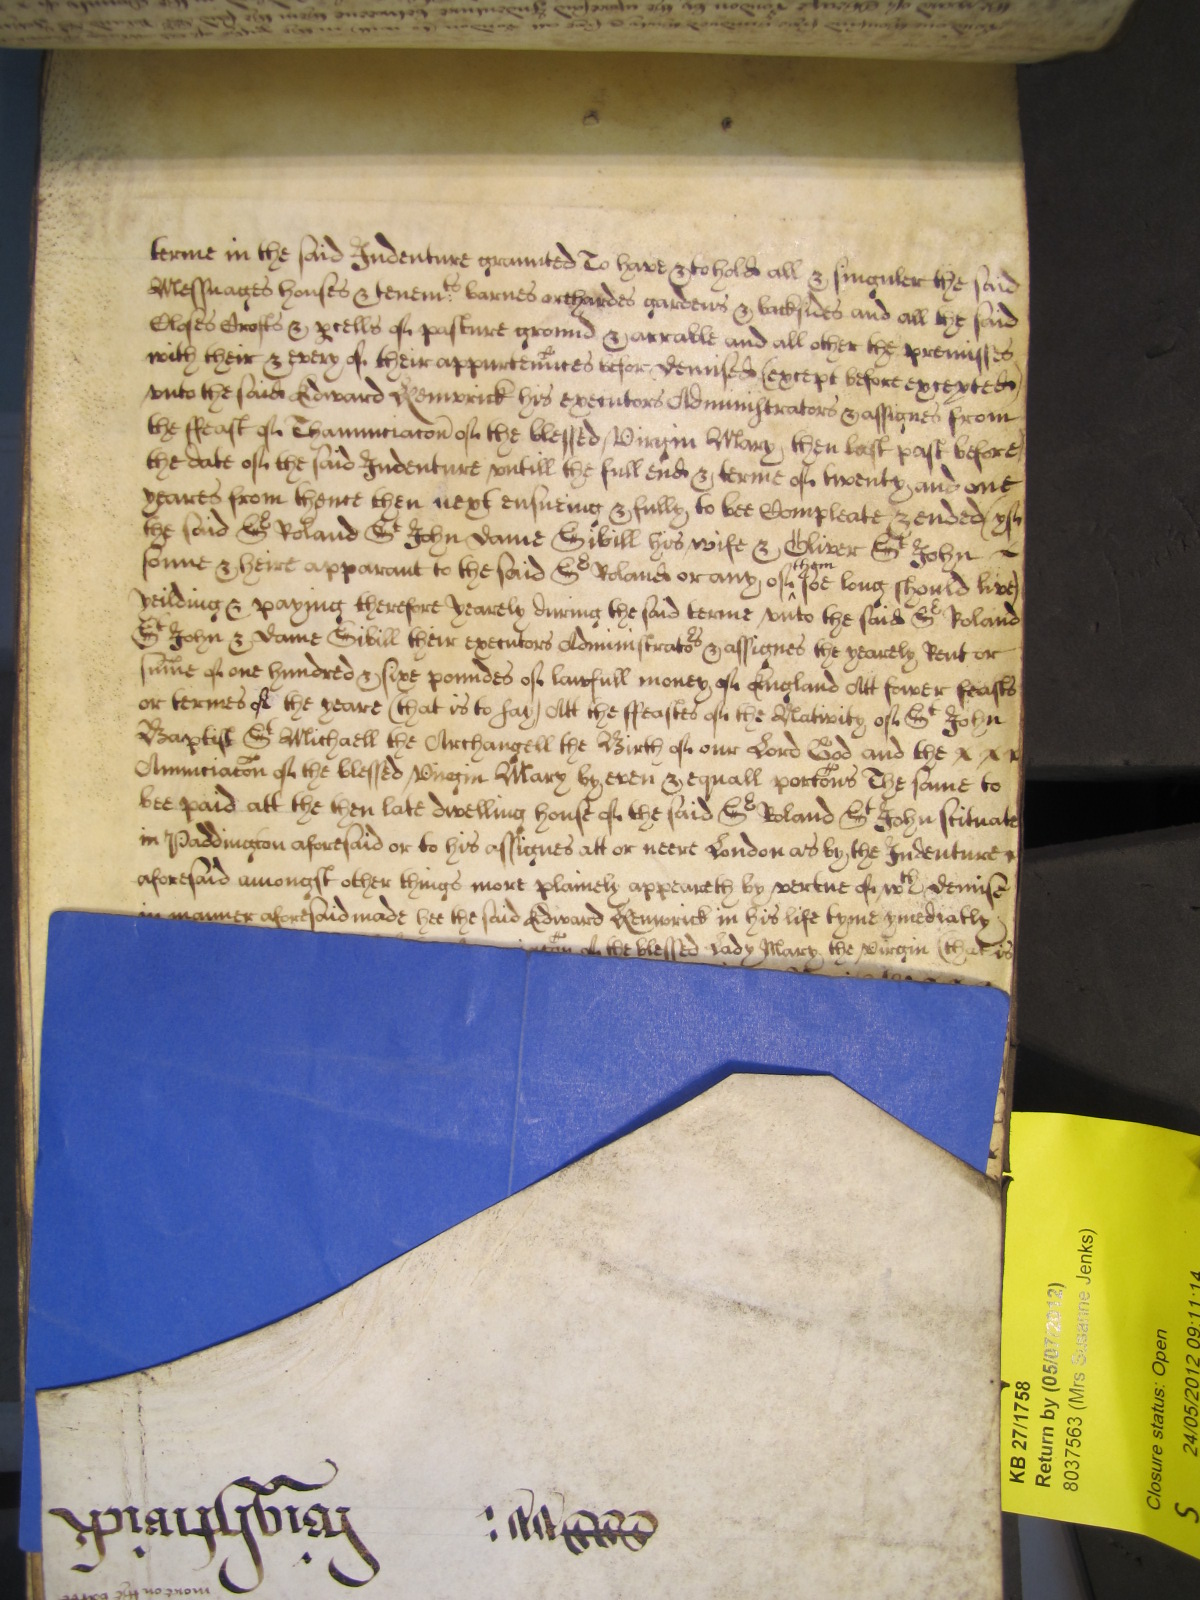 terme in the said Indenture graunted To have & to hold all & singuler the said
Messuages houses & tenem.ts barnes orchardes gardens & backsides and all the said
Closes Crofts & pcells of pasture ground & arrable and all other the premisses
with their & every of their appurtennces before demised (except before excepted)
vnto the said Edward Kenwrick his executors Administrators & assignes from
the ffeast of Thannunciacon of the blessed Virgin Mary then last past before
the date of the said Indenture vntill the full end & terme of twenty and one
yeares from thence then next ensueing & fully to bee Compleate & ended (yf
the said Sr Roland St John Dame Sibill his wife & Oliver St John ~
sonne & heire apparant to the said Sr Roland or any of ^them soe long should live)
yeilding & paying therefore yearely during the said terme vnto the said Sr Roland
St John & Dame Sibill their executors Administrators & assignes the yearely Rent or
summe of one hundred & sixe poundes of lawfull money of England Att fower feasts
or termes of the yeare (that is to say) Att the ffeastes of the Nativity of St John
Baptist St Michaell the Archangell the Birth of our Lord God and the x x x
Anunciacon of the blessed Virgin Mary by even & equall portons The same to
bee paid att the then late dwelling house of the said Sr Roland St John scituate
in Paddington aforesaid or to his assignes att or neere London as by the Indenture
aforesaid amongst other things more plainely appeareth by vertue of wch demise
in manner aforesaid made hee the said Edward Kenwrick in his life tyme ymediatly
of the blessed Lady Mary the virgin (that is
KB 27/1758
Return by (05/07/2012)
8037563 (Mrs Susanne Jenks)
Closure status: Open
S 24/05/2012 09:11:14